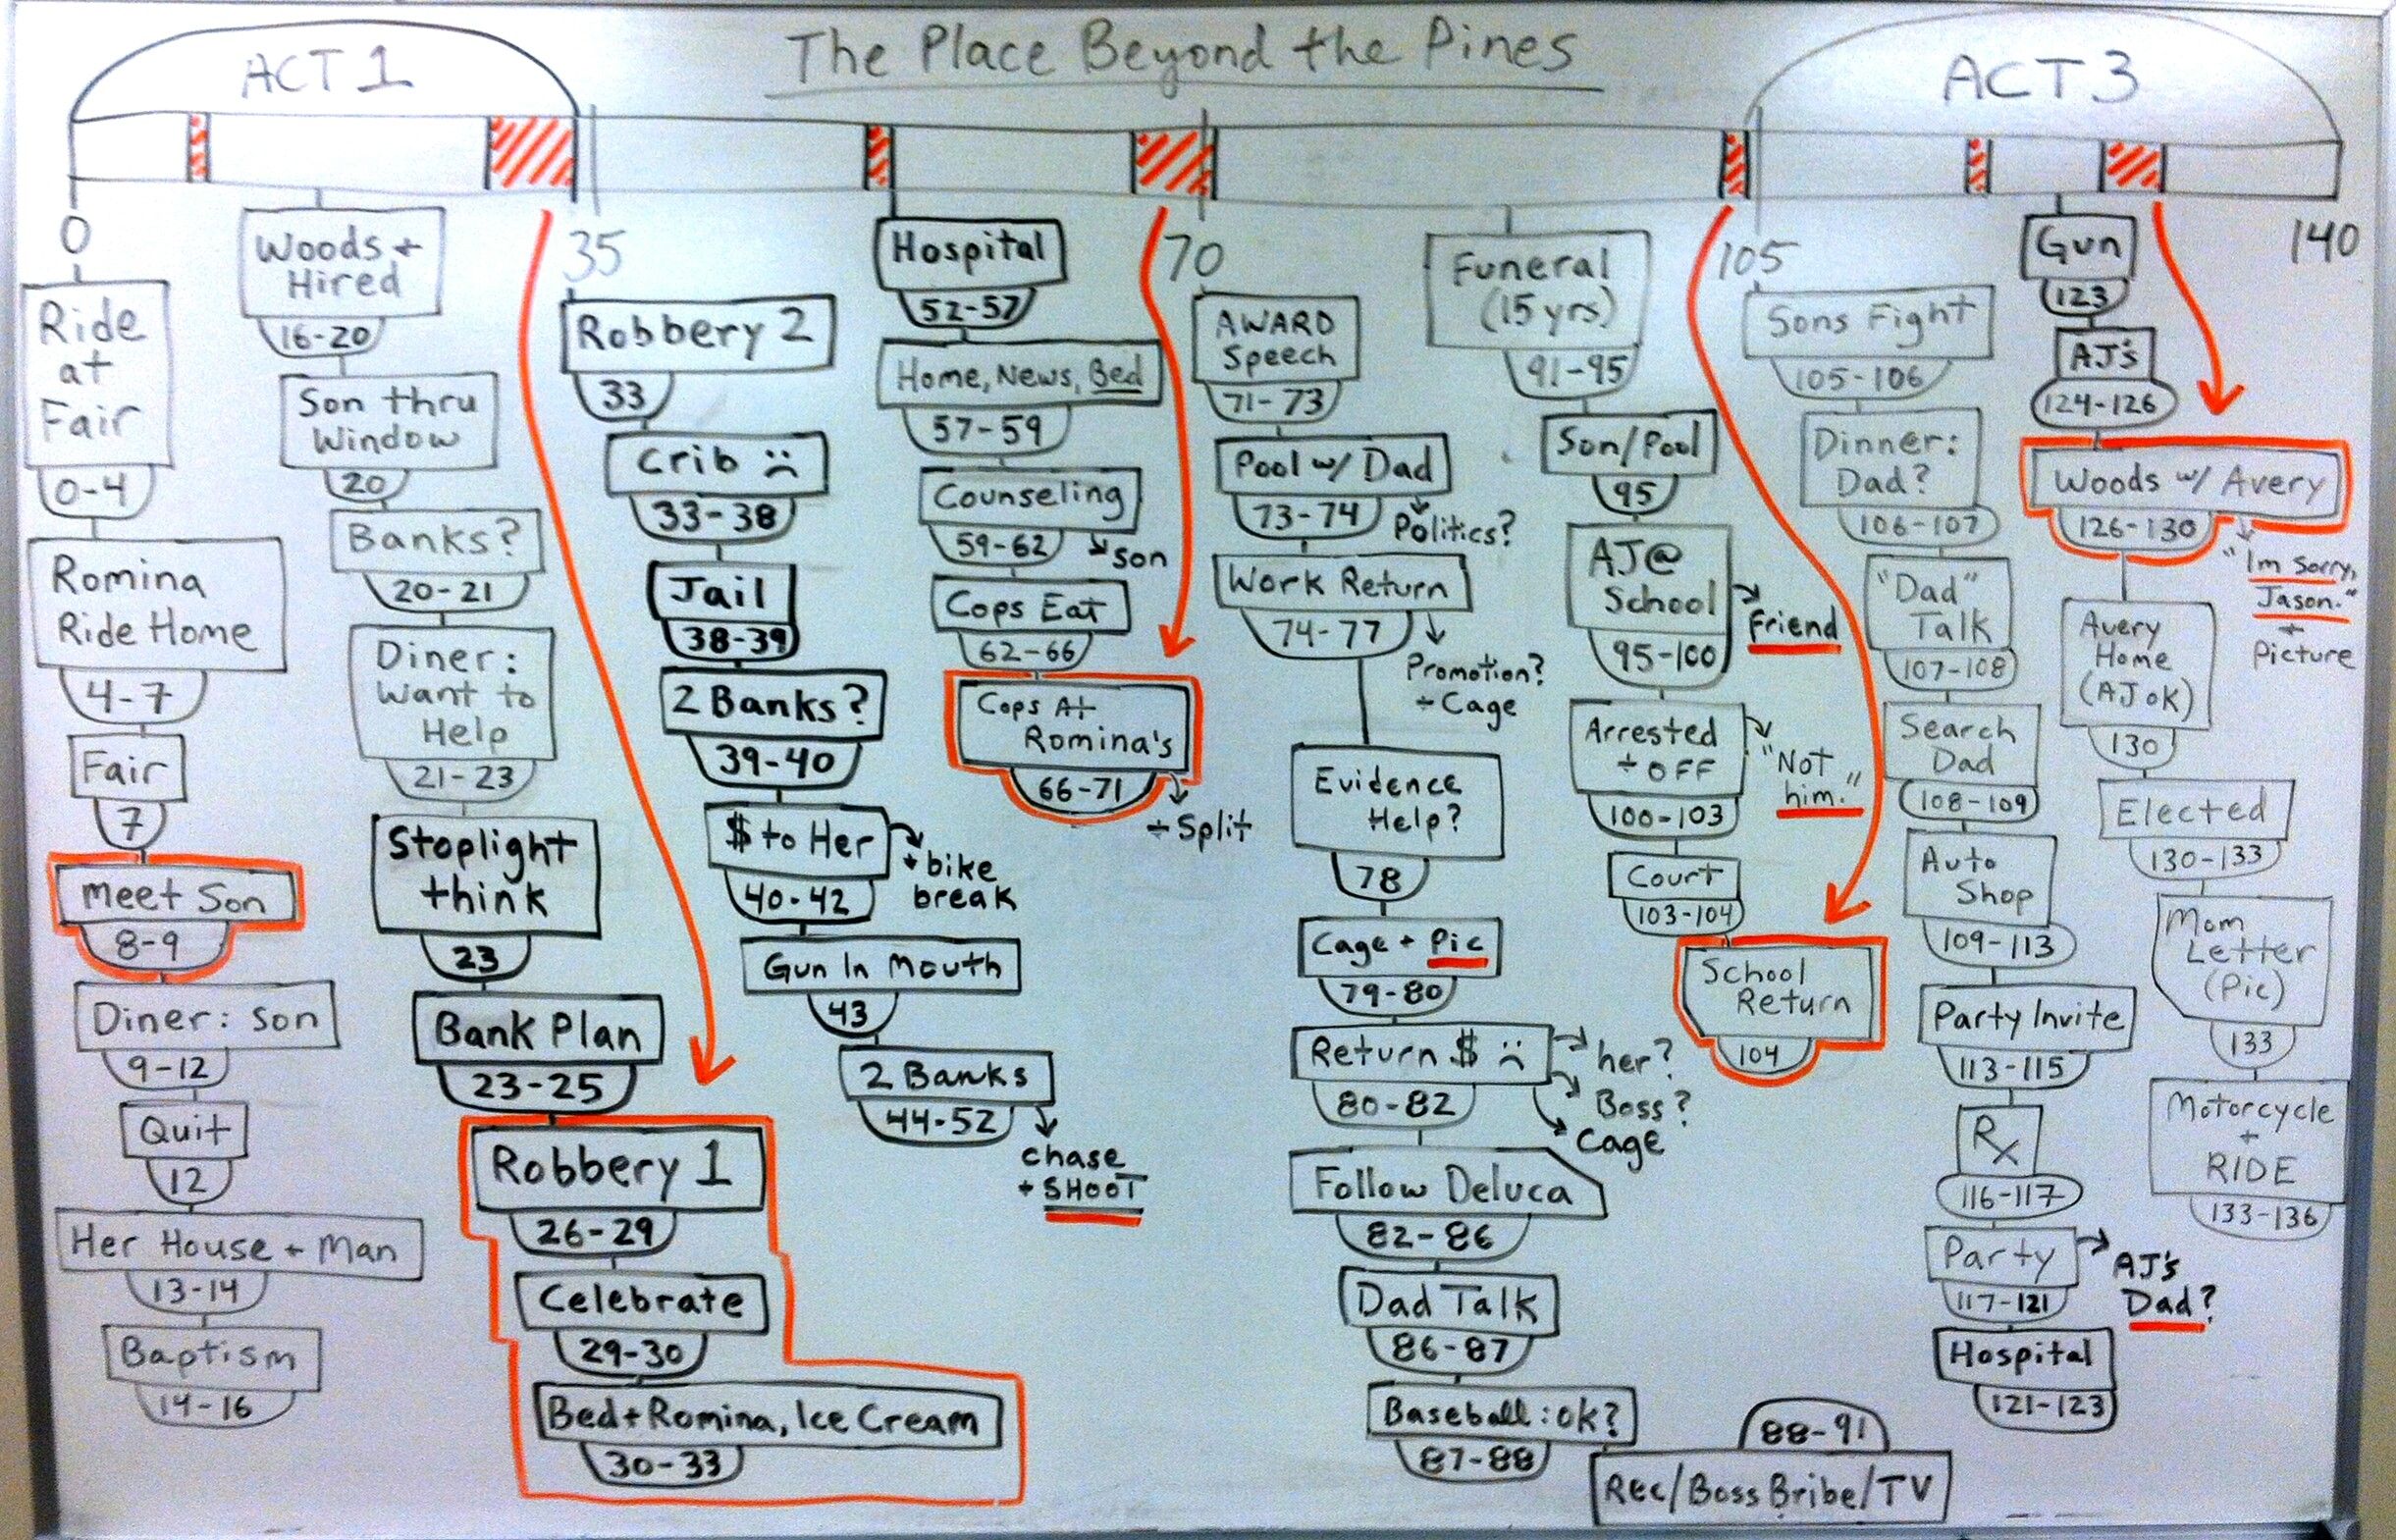 The Place Beyond the Pines
ACT 1
ACT 3
0
35
70
105
140
Ride
at
Fair
0-4
Romina
Ride Home
4-7
Fair
7
Meet Son
8-9
Diner: Son
9-12
Quit
12
Her House + Man
13-14
Baptism
14-16
Woods +
Hired
16-20
Son thru
Window
20
Banks?
20-21
Diner:
Want to
Help
21-23
Stoplight
think
23
Bank Plan
23-25
Robbery 1
26-29
Celebrate
29-30
Bed + Romina, Ice Cream
30-33
Robbery 2
33
Crib :(
33-38
Jail
38-39
2 Banks?
39-40
$ to Her
40-42
+ bike
break
Gun In Mouth
43
2 Banks
44-52
chase
+ SHOOT
Hospital
52-57
Home, News, Bed
57-59
Counseling
59-62
Son
Cops Eat
62-66
Cops At
Romina's
66-71
+ Split
AWARD
Speech
71-73
Pool w/ Dad
73-74
Politics?
Work Return
74-77
Promotion?
+ Cage
Evidence
Help?
78
Cage + Pic
79-80
Return $ :(
80-82
her?
Boss?
Cage
Follow Deluca
82-86
Dad Talk
86-87
Baseball: ok?
87-88
88-91
Rec/Boss Bribe/TV
Funeral
(15 yrs)
91-95
Son/Pool
95
AJ@
School
95-100
Friend
Arrested
+ OFF
100-103
"Not
him."
Court
103-104
School
Return
104
Sons Fight
105-106
Dinner:
Dad?
106-107
"Dad"
Talk
107-108
Search
Dad
108-109
Auto
Shop
109-113
Party Invite
113-115
Rx
116-117
Party
117-121
AJ's
Dad?
Hospital
121-123
Gun
123
AJ's
124-126
Woods w/ Avery
126-130
"Im Sorry,
Jason."
+
Picture
Avery
Home
(AJ ok)
130
Elected
130-133
Mom
Letter
(Pic)
133
Motorcycle
+
RIDE
133-136